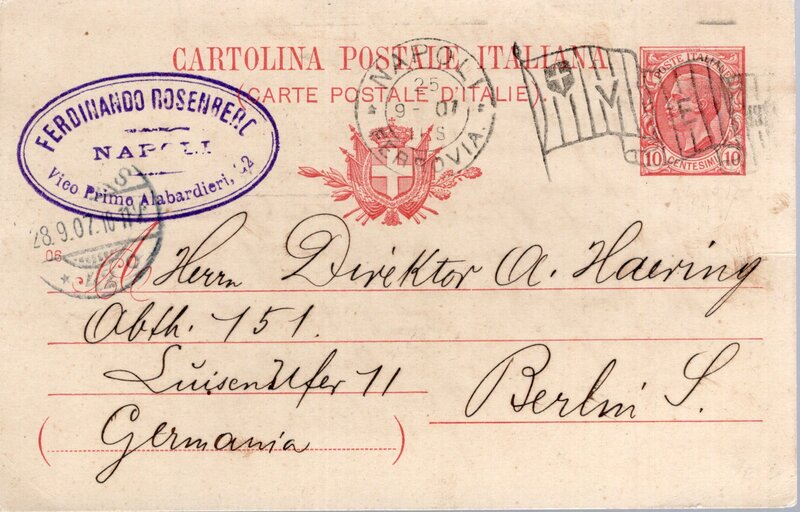 CARTOLINA POSTALE ITALIANA
(CARTE POSTALE D'ITALIE)
NAPOLI
25
9 - 07
FERROVIA
POSTE ITALIANE
10 CENTESIMI 10
FERDINANDO ROSENBERG
NAPOLI
Vico Primo Alabardieri, 22
28.9.07.10-11½
06
A Herrn Direktor A. Haering
Abth. 151.
Luisen Ufer 11
Berlin S.
(Germania)